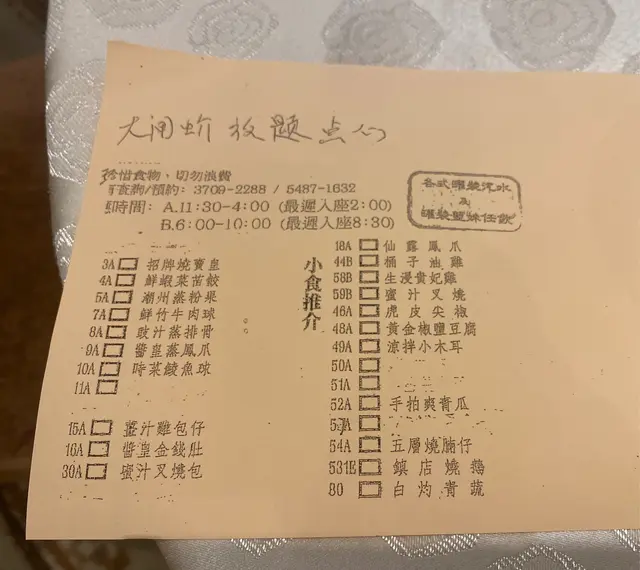 大闸蚧放题点心
珍惜食物，切勿浪費
查詢/預約：3709-2288 / 5487-1632
時間：A.11:30-4:00 (最遲入座2:00)
B.6:00-10:00 (最遲入座8:30)
各式罐裝汽水
及
罐裝盟妹任飲
3A 招牌燒賣皇
4A 鮮蝦菜苗餃
5A 潮州蒸粉果
7A 鮮竹牛肉球
8A 豉汁蒸排骨
9A 醬皇蒸鳳爪
10A 時菜鯪魚球
11A
15A 雞包仔
16A 醬皇金錢肚
30A 蜜汁叉燒包
小食推介
18A 仙露鳳爪
44B 桶子油雞
58B 生浸貴妃雞
59B 蜜汁叉燒
46A 虎皮尖椒
48A 黃金椒鹽豆腐
49A 涼拌小木耳
50A
51A
52A 手拍爽青瓜
54A 五層燒腩仔
531E 鎮店燒鵝
80 白灼青蔬